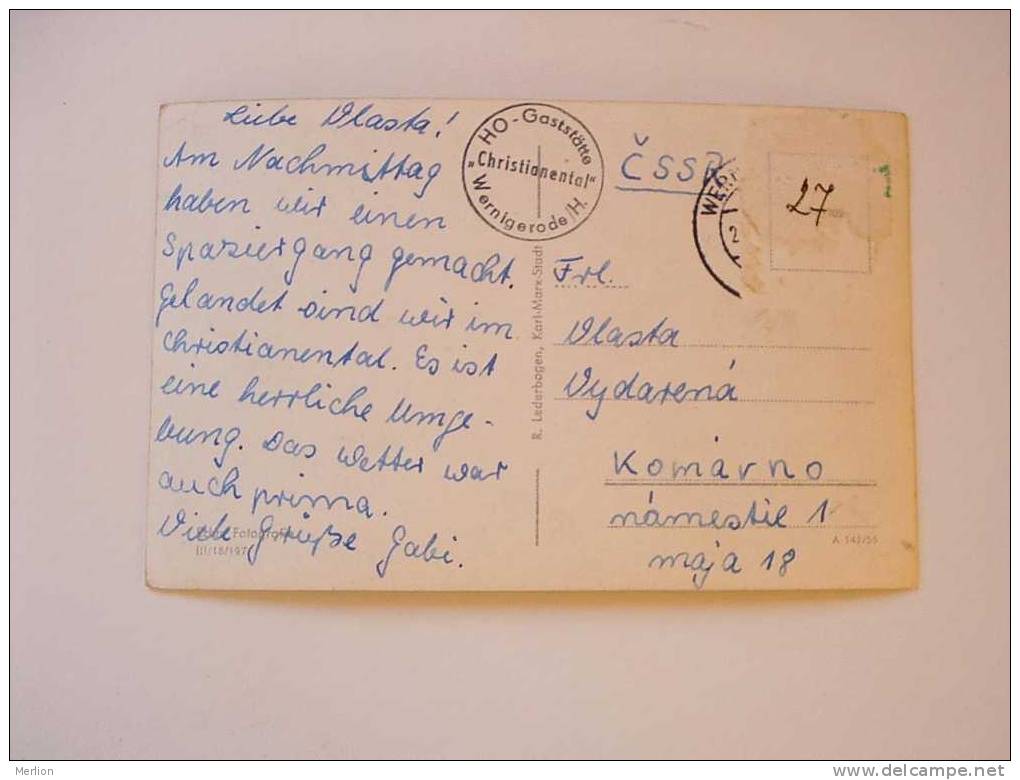 Liebe Vlasta!
Am Nachmittag
haben wir einen
Spaziergang gemacht.
Gelandet sind wir im
Christianental. Es ist
eine herrliche Umge-
bung. Das Wetter war
auch prima.
Viele Grüße Gabi.
III/18/197
HO-Gaststätte
„Christianental"
Wernigerode/H.
R. Lederbogen, Karl-Marx-Stadt
ČSSR
WER
2
27
Frl.
Vlasta
Vydarená
Komárno
námestie 1
mája 18
A 142/55
Merlion
delcampe.net